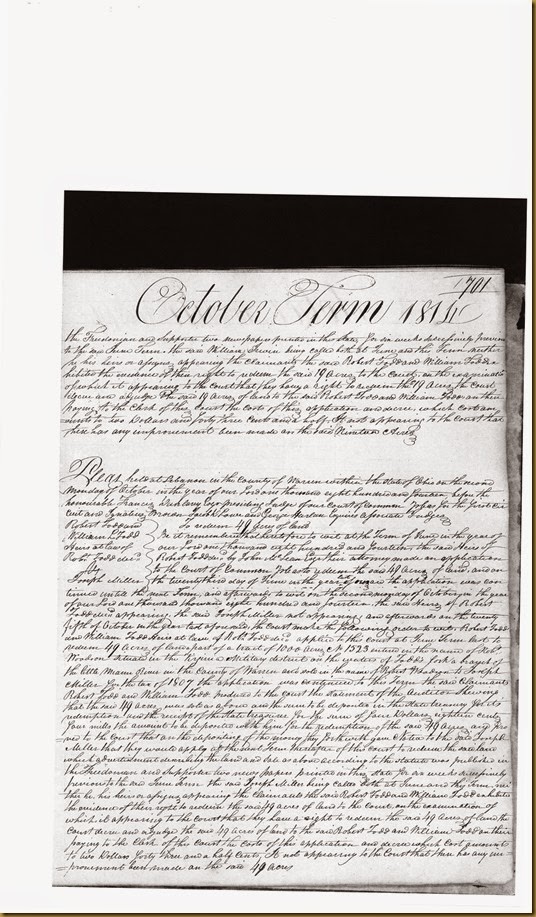 701
October Term 1814
the Freedonian and Supporter two newspapers printed in this State for six weeks successively previous
to the said June Term. the said William Irwin being called both at June and this Term neither
he his heirs or assigns appearing the Claimants the said Robert Todd and William Todd
the evidence of their right to redeem the said 19 Acres to the Court, on the examination
of which it appearing to the Court that they have a right to redeem the 19 Acres the Court
decree and adjudge the said 19 acres of land to the said Robert Todd and William Todd on their
paying to the Clerk of this Court the costs of this application and decree, which cost am
ounts to two Dollars and forty three cents and a half. It not appearing to the Court that
there has any improvement been made on the said Nineteen Acres
Pleas, held at Lebanon in the County of Warren within the State of Ohio on the second
Monday of October in the year of our Lord one thousand eight hundred and fourteen before the
honourable Francis Dunlavy Esqr presiding Judge of our Court of Common Pleas for the first Cir
cuit and Ignatius Brown Jacob and George Harlan Esquires Associate Judges
Robert Todd and To redeem 49 acres of land
William Todd Be it remembered that heretofore to wit at the Term of June in the year of
Heirs at law of our Lord one thousand eight hundred and fourteen the said Heirs of
Robt Todd decd Robert Todd decd by John McLean Esqr their attorney made an application
vs to the Court of Common Pleas to redeem the said 49 Acres of land, and on
Joseph Miller the twenty third day of June in the year the application was con
tinued until the next Term, and afterwards to wit on the second monday of October in the year
of our Lord one thousand eight hundred and fourteen the said Heirs of Robert
Todd decd appearing, the said Joseph Miller not appearing and afterwards on the twenty
fifth of October in the year last aforesaid the Court make the following order to wit Robert Todd
and William Todd Heirs at law of Robt Todd decd applied to the Court at June Term last to
redeem 49 acres of land part of a tract of 1000 acres No 1523 entered in the name of Robt
Woodson situate in the Virginia Military district on the waters of Todds fork a branch of
the little Miami River in the County of Warren and sold in the name of Robert Woodson to Joseph
Miller for the tax of 1807 the application was continued to this Term. the said Claimants
Robert Todd and William Todd produced to the Court the statement of the Auditor shewing
that the said 49 acres was sold as above and the sum to be deposited in the State treasury for its
redemption and the receipt of the State treasurer for the sum of four Dollars eighteen Cents
four mills the amount to be deposited with him for the redemption of the said 49 Acres, and pro
ved to the Court that on the depositing of the money they forthwith gave notice to the said Joseph
Miller that they would apply at the next Term thereafter of this Court to redeem the said land
which advertisement describing the land and sale as above according to the statute was published in
the Freedonian and Supporter two news papers printed in this State for six weeks successively
previous to the said June Term. the said Joseph Miller being called both at June and this Term nei
ther he his heirs or assigns appearing the claimants the said Robert Todd and William Todd exhibited
the evidence of their right to redeem the said 49 acres of land to the Court, on the examination of
which it appearing to the Court that they have a right to redeem the said 49 acres of land the
Court decree and adjudge the said 49 acres of land to the said Robert Todd and William Todd on their
paying to the Clerk of this Court the costs of this application and decree which cost amounts
to two Dollars forty three and a half cents, It not appearing to the Court that there has any im
provement been made on the said 49 acres